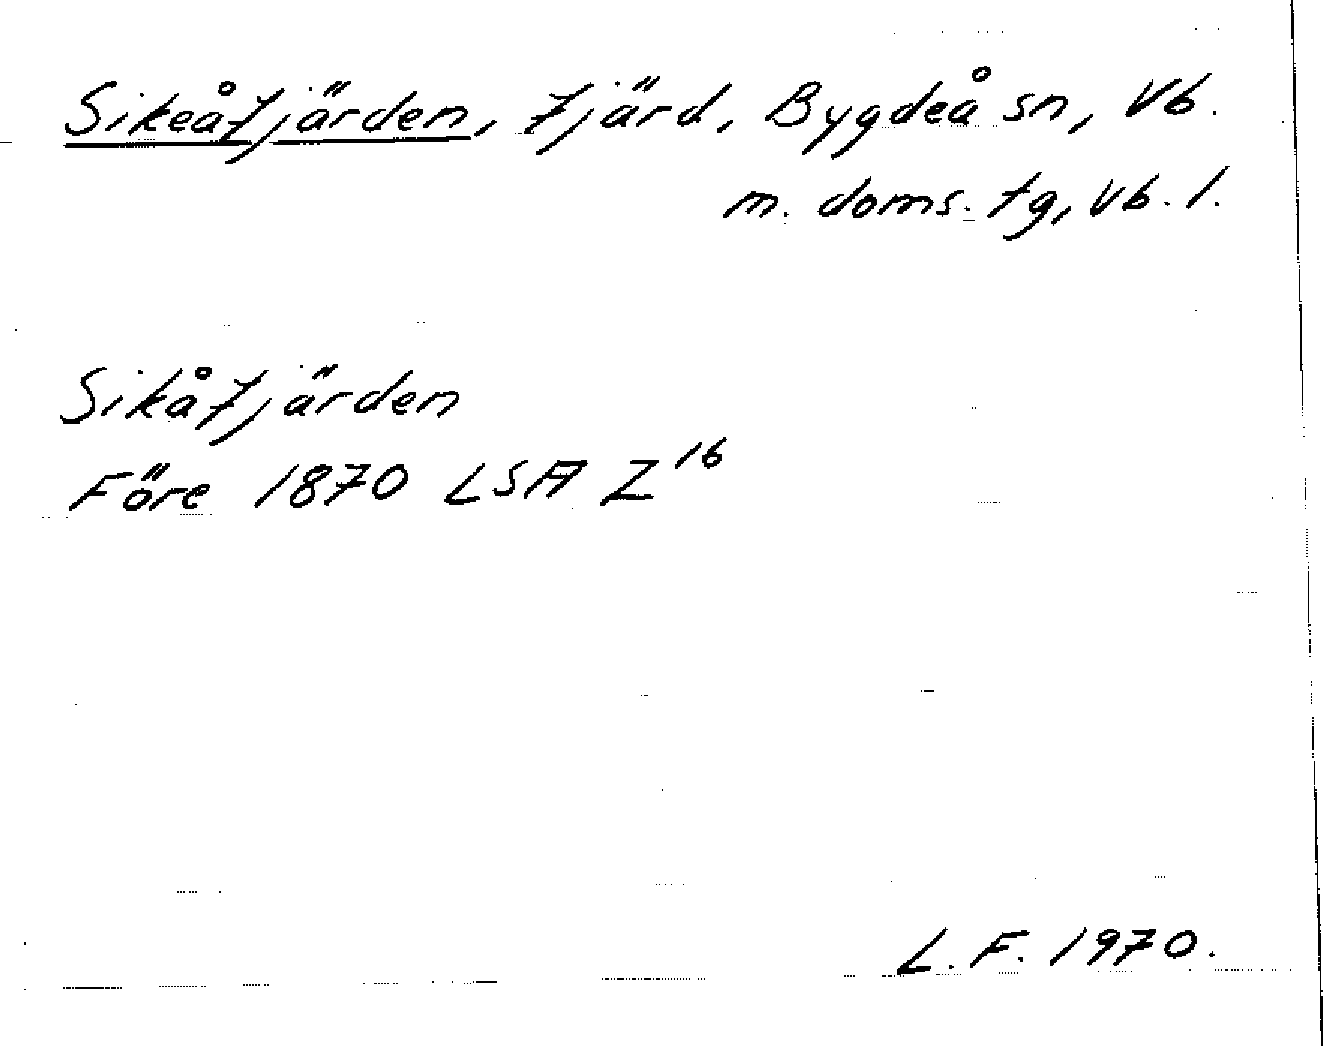 Sikeåfjärden, fjärd, Bygdeå sn, Vb.
m. doms. tg, Vb. l.
Sikåfjärden
Före 1870 LSA Z¹⁶
L. F. 1970.